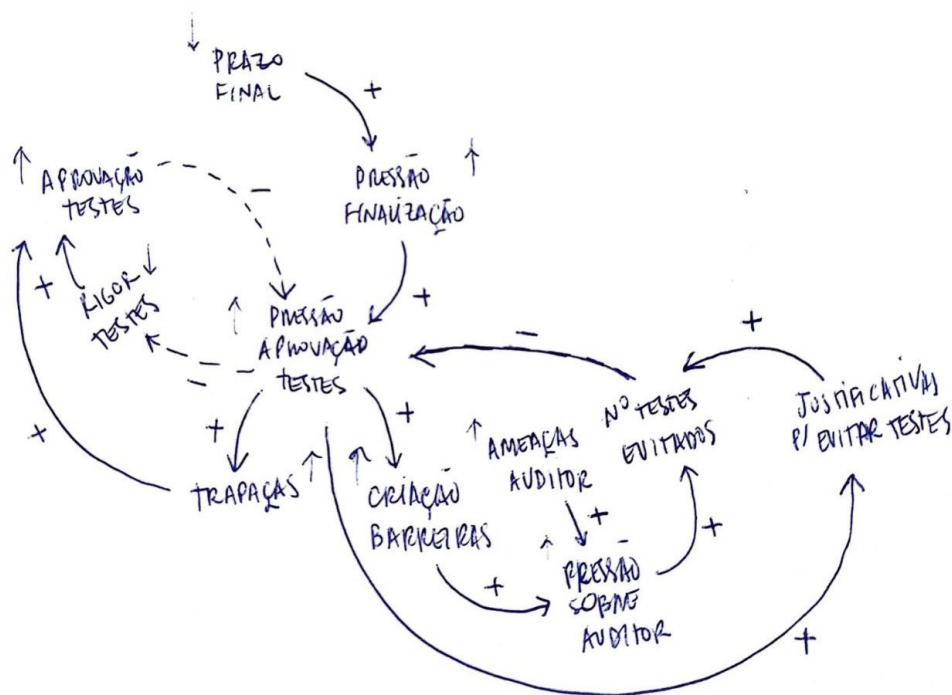 ↓ PRAZO
FINAL
+
↑ APROVAÇÃO
TESTES
-
PRESSÃO ↑
FINALIZAÇÃO
+
+
RIGOR ↓
TESTES
↑ PRESSÃO
APROVAÇÃO
TESTES
-
-
+
+
+
+
TRAPAÇAS ↑
↑ CRIAÇÃO
BARREIRAS
↑ AMEAÇAS
AUDITOR
Nº TESTES
EVITADOS
JUSTIFICATIVAS
P/ EVITAR TESTES
+
+
+
↑ PRESSÃO
SOBRE
AUDITOR
+